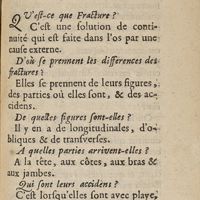 QU'est-ce que Fracture ?
C'est une solution de conti-
nuité qui est faite dans l'os par une
cause externe.
D'où se prennent les differences des
fractures ?
Elles se prennent de leurs figures,
des parties où elles sont, & des ac-
cidens.
De quelles figures sont-elles ?
Il y en a de longitudinales, d'o-
bliques & de transverses.
A quelles parties arrivent-elles ?
A la tête, aux côtes, aux bras &
aux jambes.
Qui sont leurs accidens ?
C'est lorsqu'elles sont avec playe,